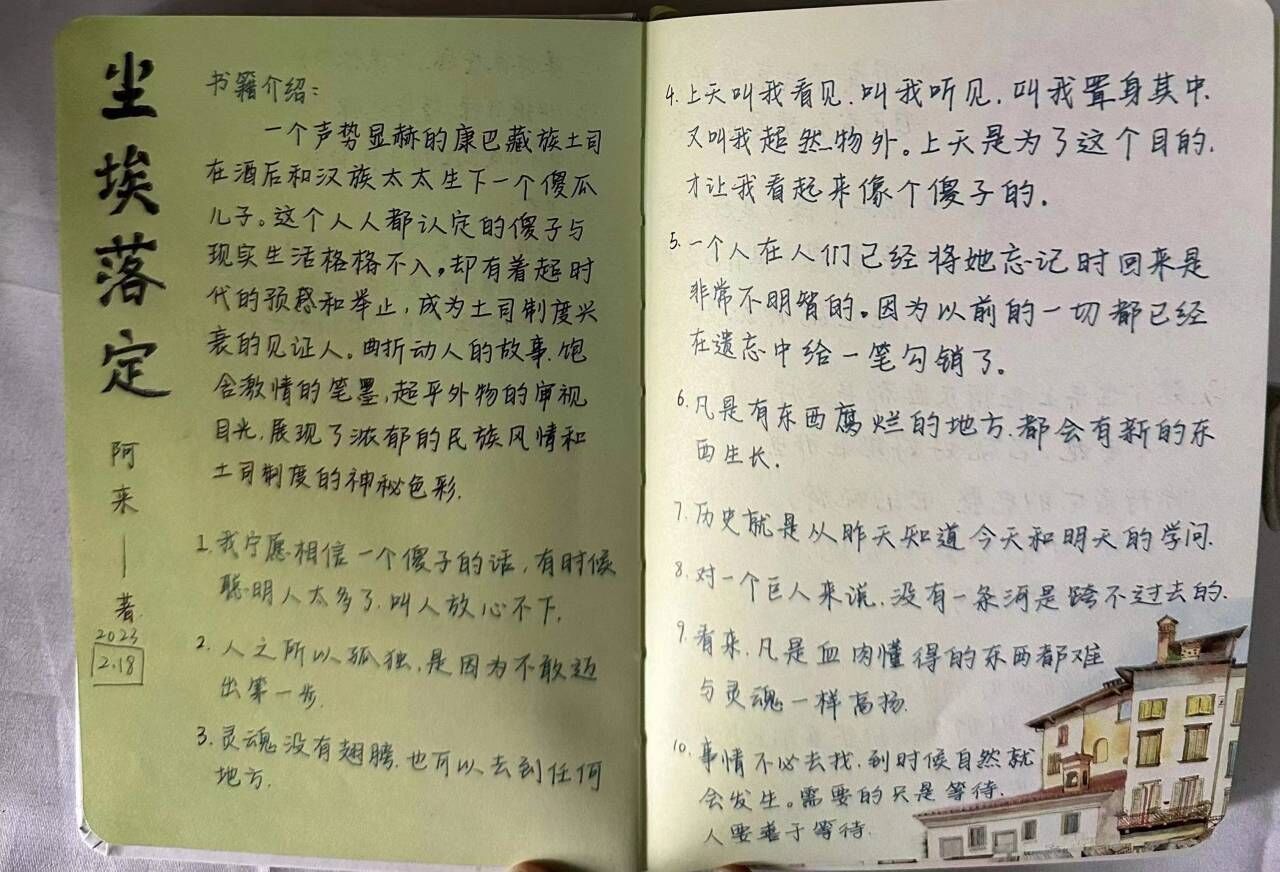 尘埃落定
阿来—著
2023
2.18
书籍介绍：
一个声势显赫的康巴藏族土司
在酒后和汉族太太生下一个傻瓜
儿子。这个人人都认定的傻子与
现实生活格格不入，却有着超时
代的预感和举止，成为土司制度兴
衰的见证人。曲折动人的故事，饱
含激情的笔墨，超乎外物的审视
目光，展现了浓郁的民族风情和
土司制度的神秘色彩.
1. 我宁愿相信一个傻子的话，有时候
聪明人太多了，叫人放心不下.
2. 人之所以孤独，是因为不敢迈
出第一步.
3. 灵魂没有翅膀，也可以去到任何
地方.
4. 上天叫我看见，叫我听见，叫我置身其中，
又叫我超然物外。上天是为了这个目的，
才让我看起来像个傻子的.
5. 一个人在人们已经将她忘记时回来是
非常不明智的。因为以前的一切都已经
在遗忘中给一笔勾销了。
6. 凡是有东西腐烂的地方，都会有新的东
西生长.
7. 历史就是从昨天知道今天和明天的学问.
8. 对一个巨人来说，没有一条河是跨不过去的.
9. 看来，凡是血肉懂得的东西都难
与灵魂一样高扬.
10. 事情不必去找，到时候自然就
会发生。需要的只是等待.
人要善于等待.